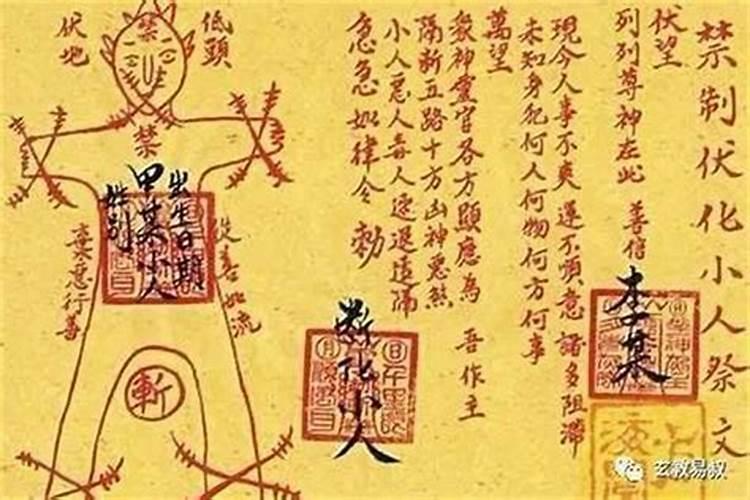 禁制伏化小人祭文
伏望
列列尊神在此 善信
李某
現今人事不爽 運不順意 諸多阻滯
未知身犯何人何物何方何事
萬望
衆神靈官各方顯應為 吾作主
隔斷五路十方凶神惡煞
小人惡人毒人速退遠隔
急急如律令 勅
斷化小人
低頭
伏地
禁
禁
出生日期
甲某小人
性别
從善如流
棄惡行善
斬
玄教易叔